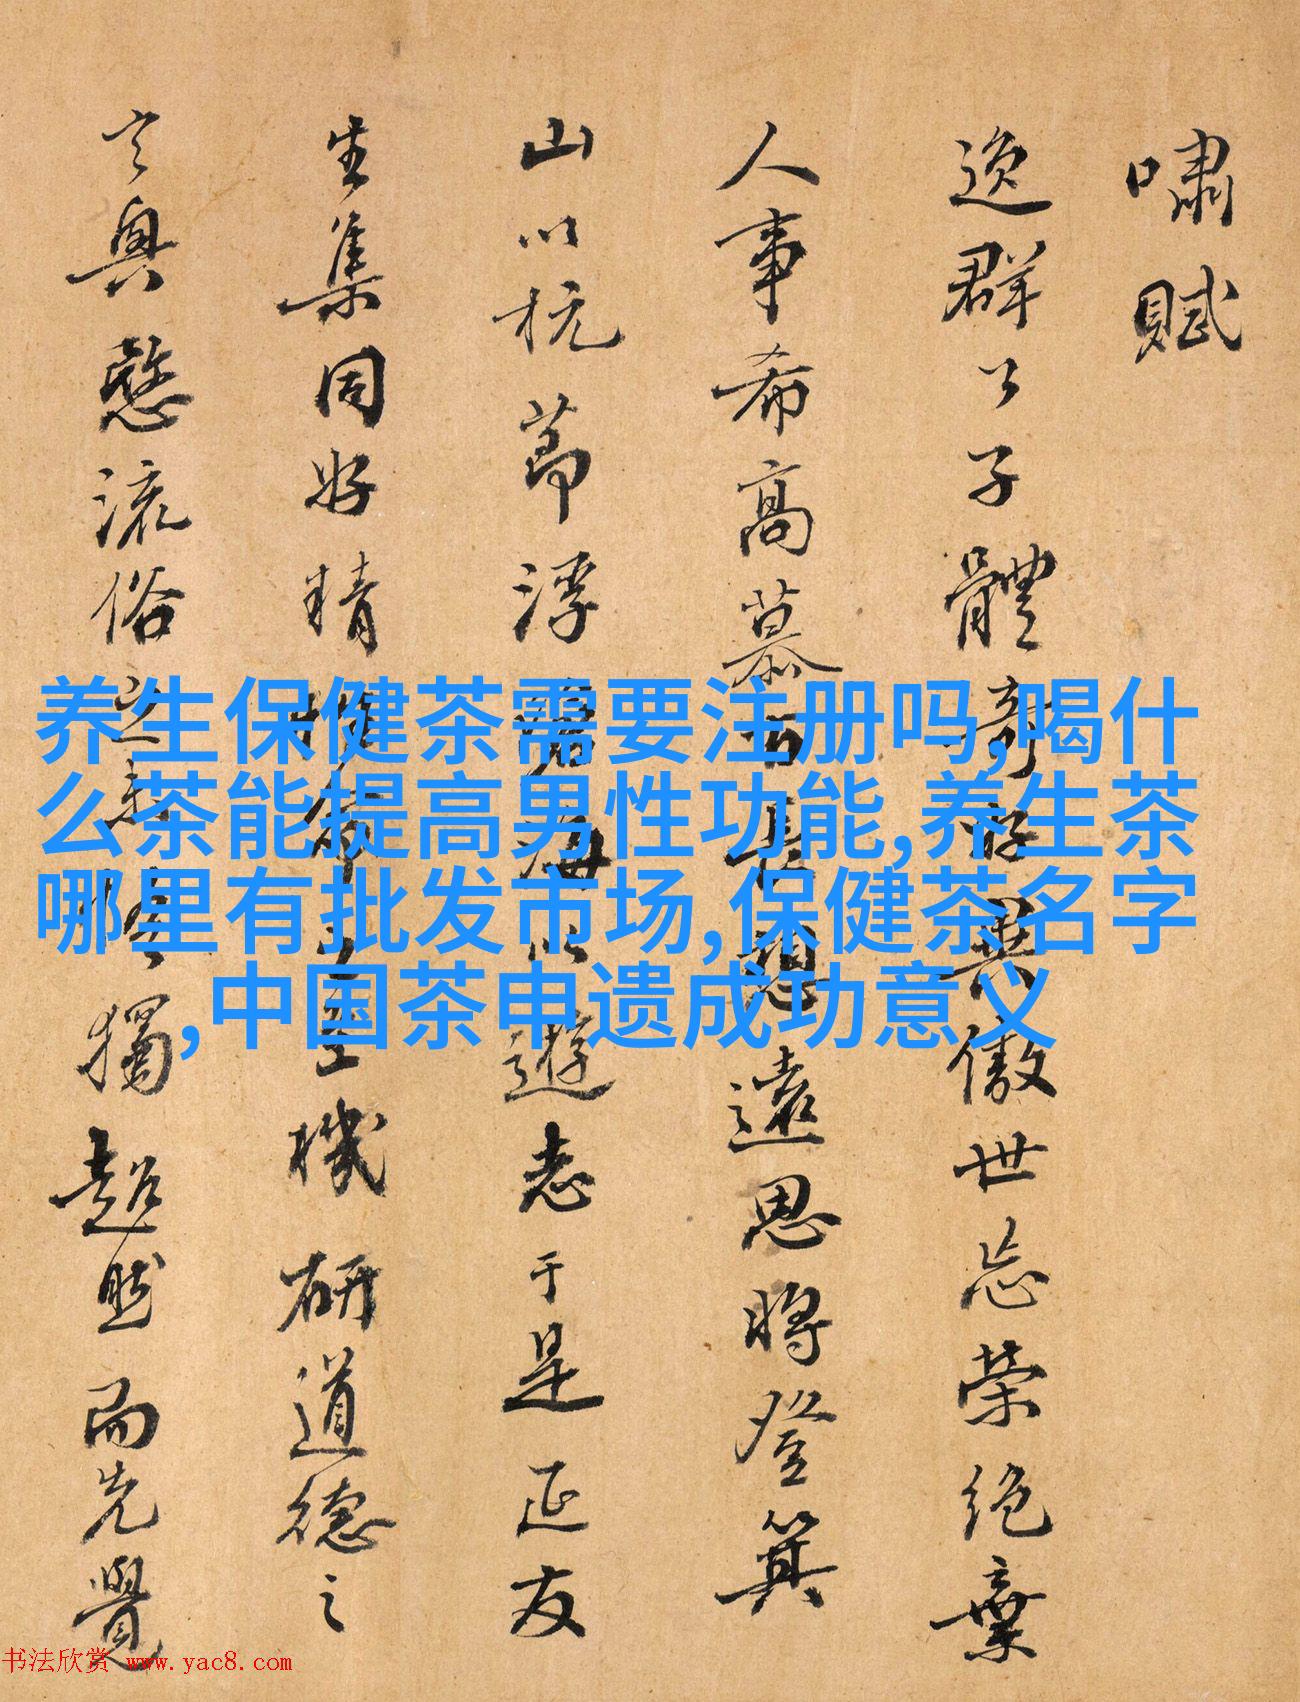 嘯賦
逸群公子體奇好異傲世忘榮絕棄
人事希高慕古長想遠思將登箕
山以抗節浮滄海以遊志于是延友
生集同好精性命之至機研道德之
玄奧愍流俗之未悟獨超然而先覺
养生保健茶需要注册吗,喝什
么茶能提高男性功能,养生茶
哪里有批发市场,保健茶名字
,中国茶申遗成功意义
书法欣赏 www.yac8.com